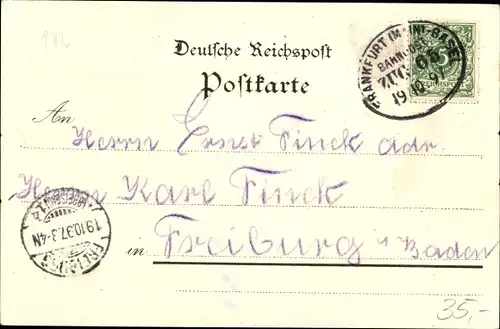 186
Deutsche Reichspost
Postkarte
FRANKFURT (MAIN)-BASEL
BAHNPOST
ZUG
19 10 97
5
An Herrn Ernst Finck adr.
Herrn Karl Finck
in Freiburg i Baden
19.10.97.3-4N
35,-